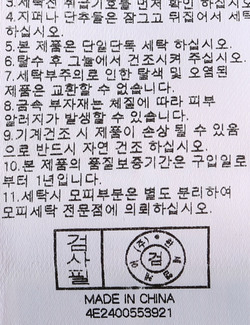 3.세탁전 취급기호를 먼저 확인 하십시오.
4.지퍼나 단추등은 잠그고 뒤집어서 세탁
하십시오.
5.본 제품은 단일단독 세탁 하십시오.
6.탈수 후 그늘에서 건조시켜 주십시오.
7.세탁부주의로 인한 탈색 및 오염된
제품은 교환할 수 없습니다.
8.금속 부자재는 체질에 따라 피부
알러지가 발생할 수 있습니다.
9.기계건조 시 제품이 손상 될 수 있음
으로 반드시 자연 건조 하십시오.
10.본 제품의 품질보증기간은 구입일로
부터 1년입니다.
11.세탁시 모피부분은 별도 분리하여
모피세탁 전문점에 의뢰하십시오.
검
사필
검
MADE IN CHINA
4E2400553921